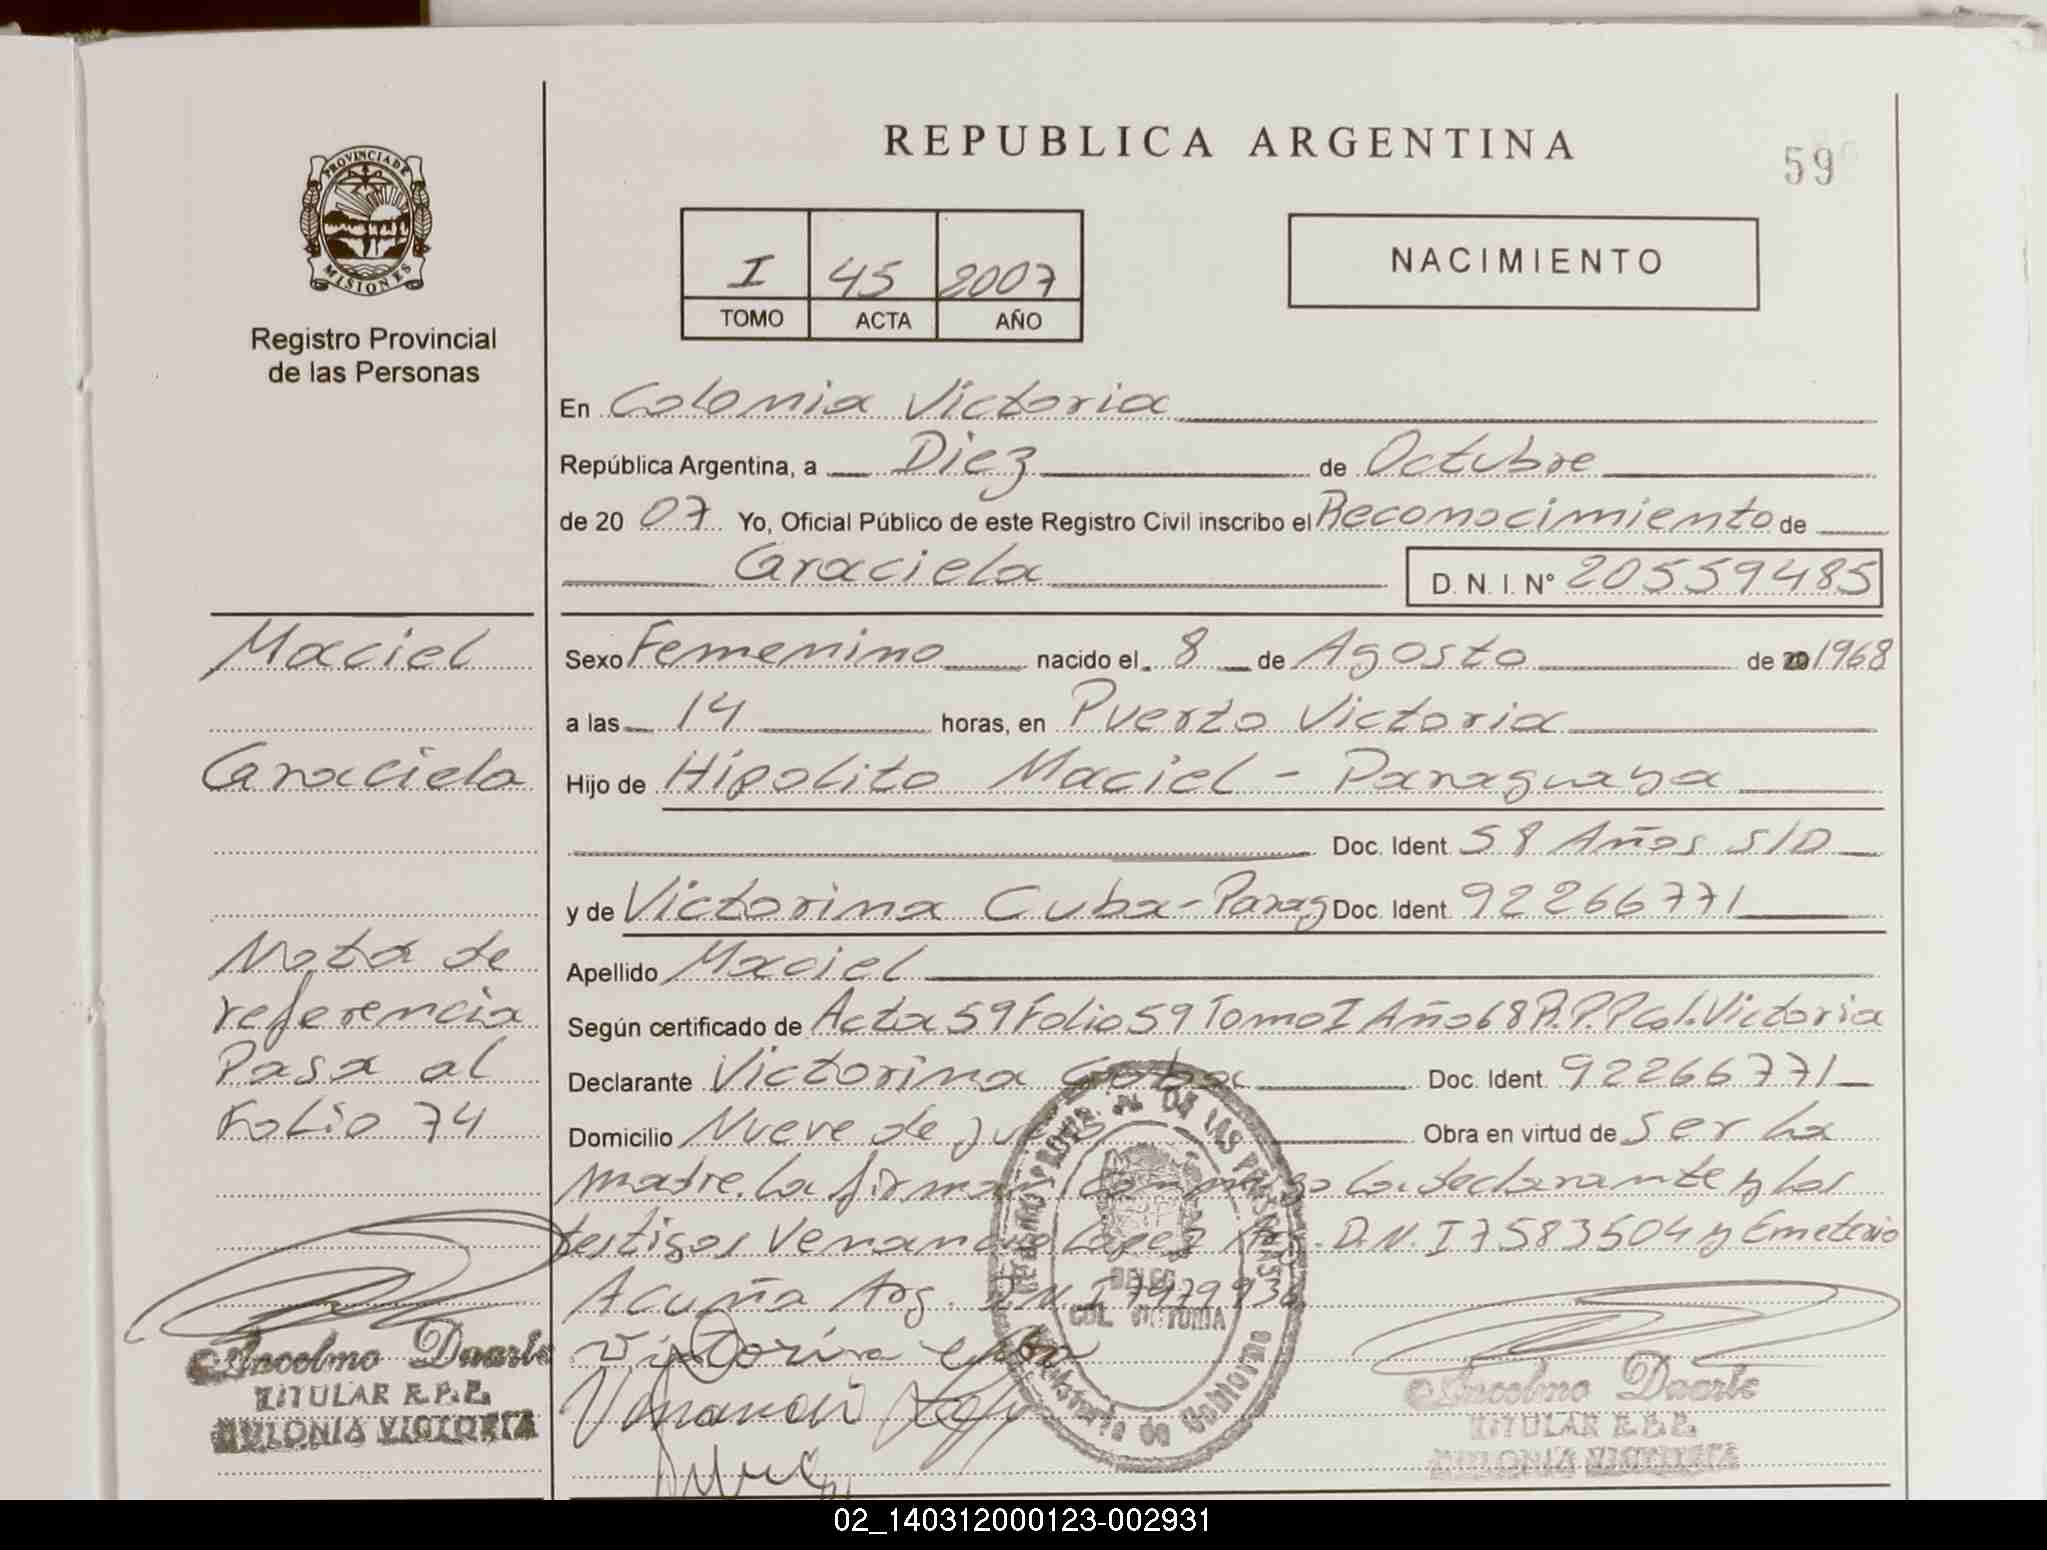 REPUBLICA ARGENTINA
59
PROVINCIA DE
MISIONES
Registro Provincial
de las Personas
I 45 2007
TOMO ACTA AÑO
NACIMIENTO
En Colonia Victoria
República Argentina, a Diez de Octubre
de 20 07 Yo, Oficial Público de este Registro Civil inscribo el Reconocimiento de
Graciela D. N. I. N° 20559485
Maciel
Graciela
Nota de
referencia
Pasa al
Folio 74
Sexo Femenino nacido el 8 de Agosto de 20 1968
a las 14 horas, en Puerto Victoria
Hijo de Hipolito Maciel - Paraguaya
Doc. Ident 58 Años S/D
y de Victorina Cuba - Parag Doc. Ident. 92266771
Apellido Maciel
Según certificado de Acta 59 Folio 59 Tomo I Año 68 R.P.P Col. Victoria
Declarante Victorina Cuba Doc. Ident. 92266771
Domicilio Nueve de Obra en virtud de ser la
madre. La firman conmigo la declarante y los
testigos Venancio Lopez Arg. D.N.I 7583504 y Emeterio
Acuña Arg. D.N.I
DELEG.
COL. VICTORIA
Ministerio de Gobierno
Ancelmo Duarte
TITULAR R.P.P.
COLONIA VICTORIA
Ancelmo Duarte
TITULAR R.P.P.
COLONIA VICTORIA
02_140312000123-002931